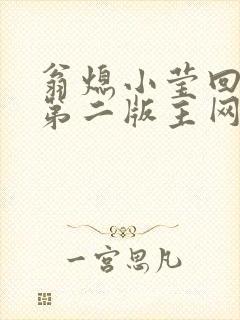 翁熄小莹回
第二版主网
一宫思凡